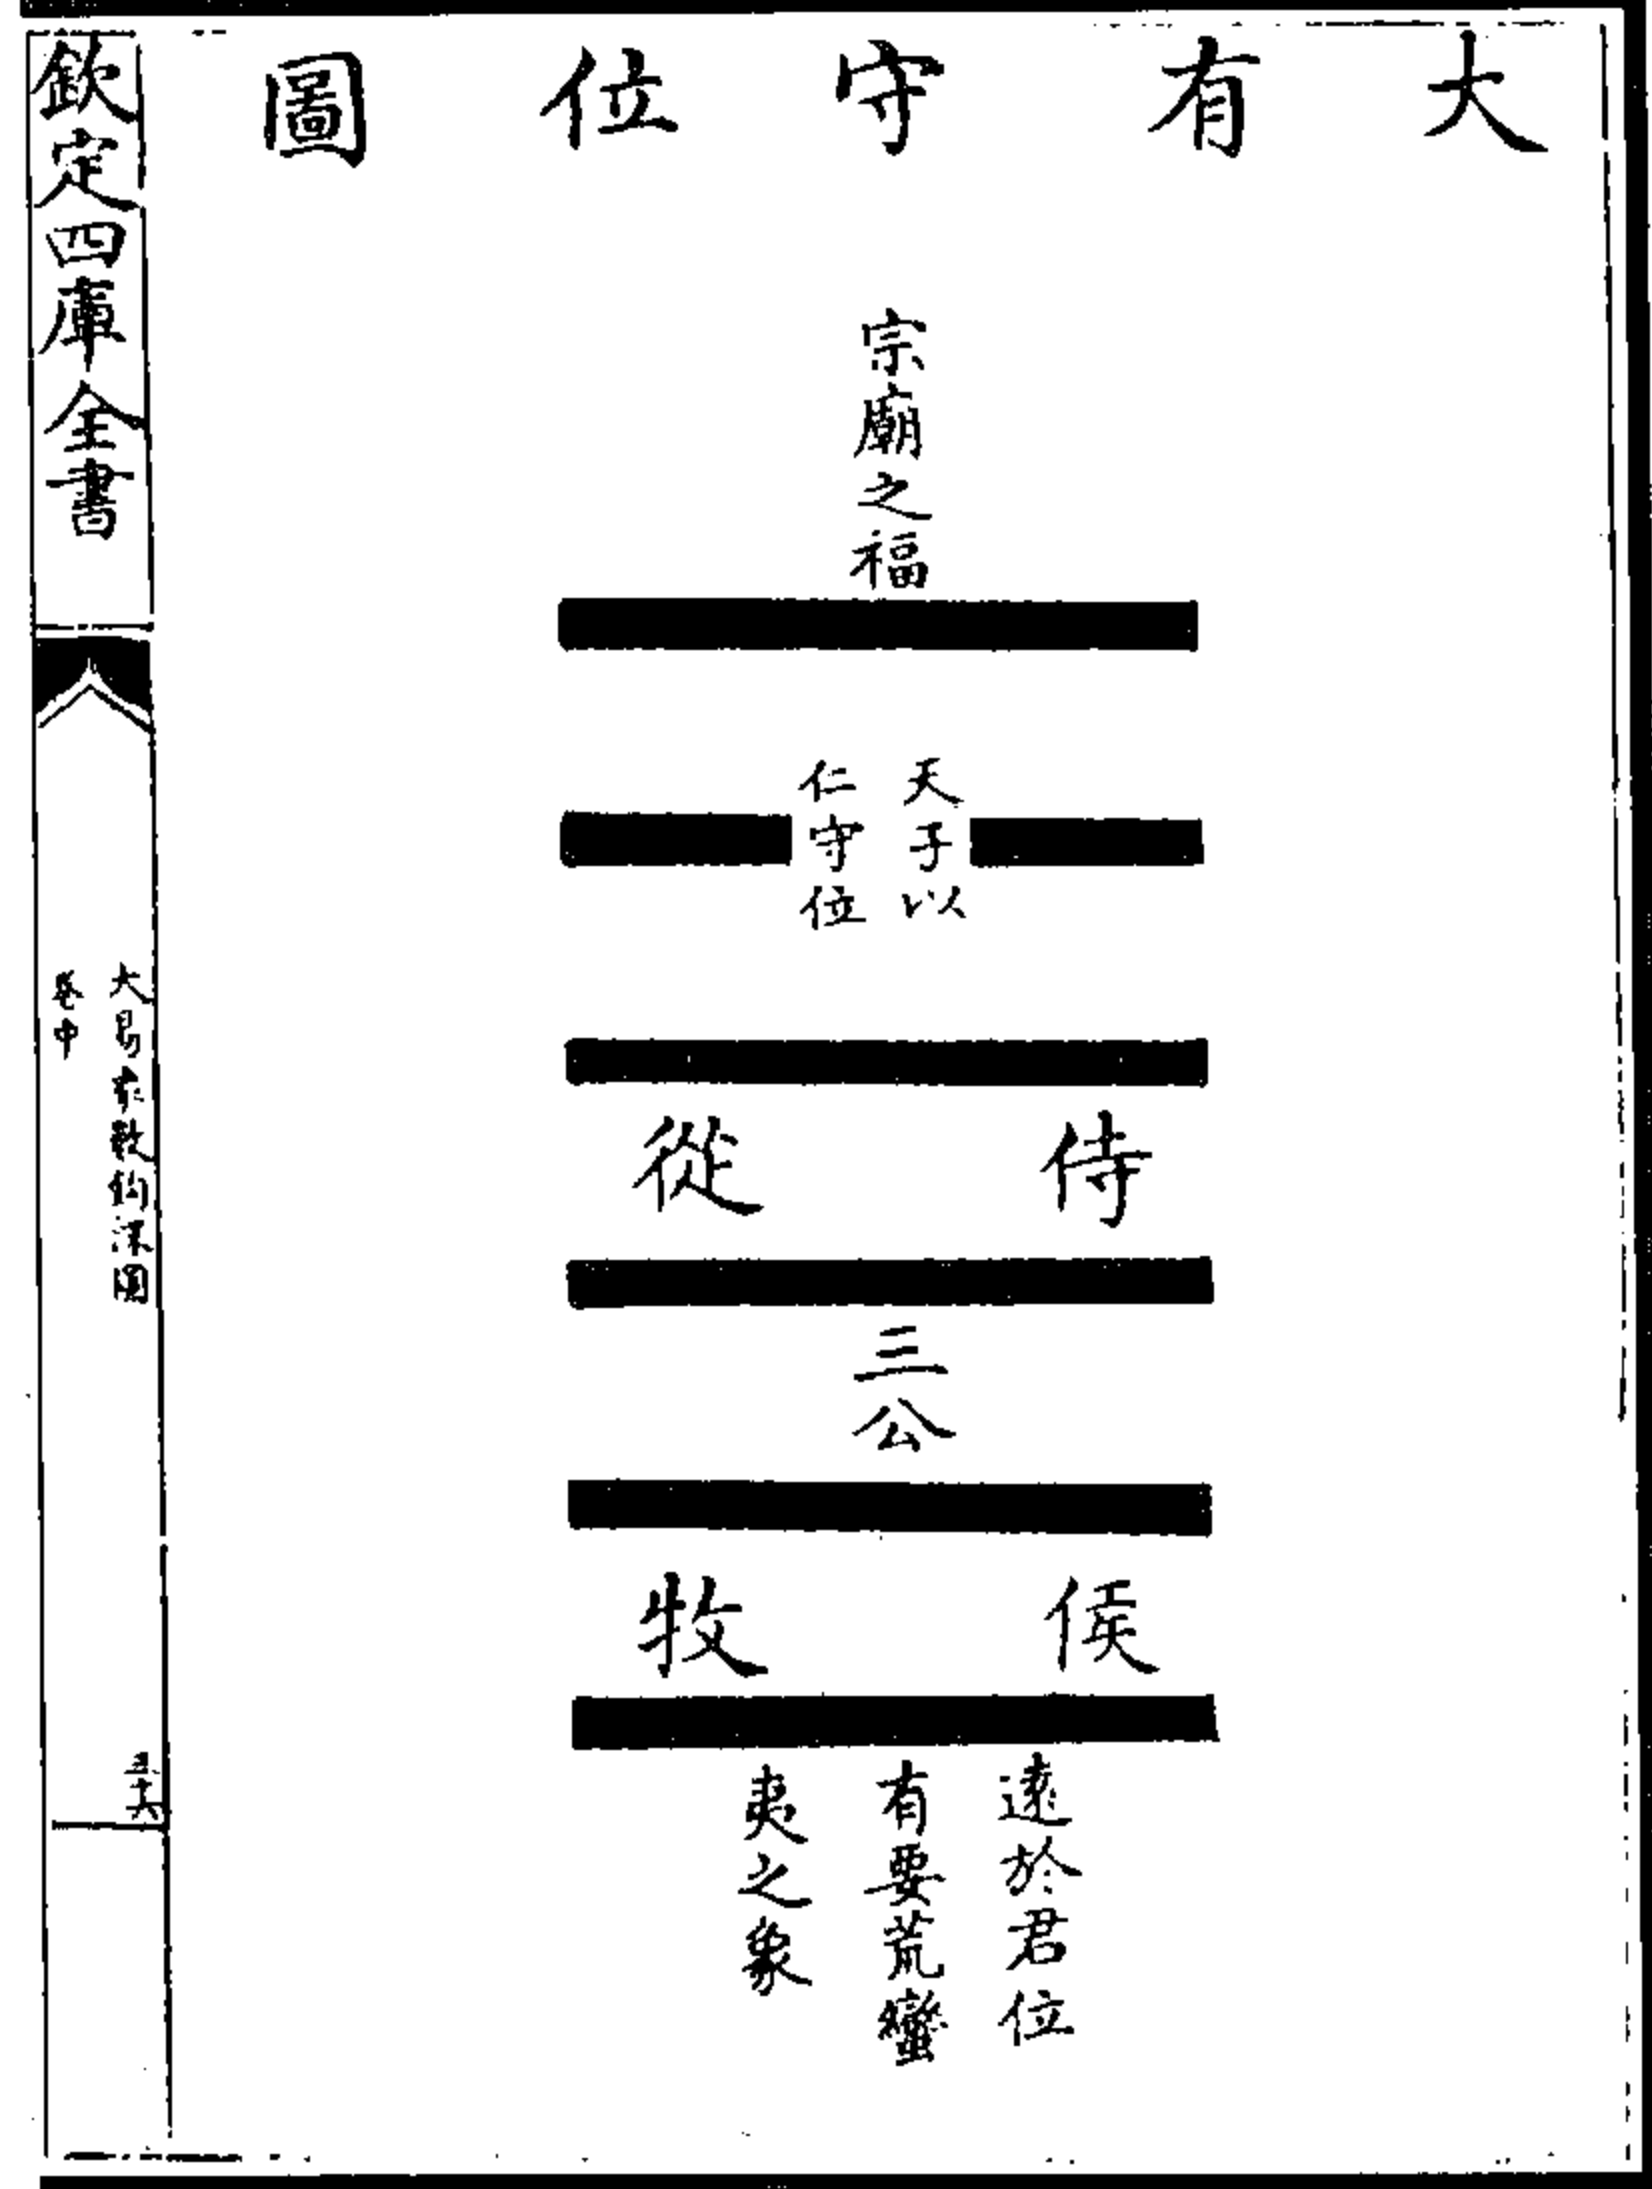 大有守位圖
宗廟之福
天子以
仁守位
侍從
三公
侯牧
遠於君位
有要荒蠻
夷之象
欽定四庫全書
大易象數鉤深圖
卷中